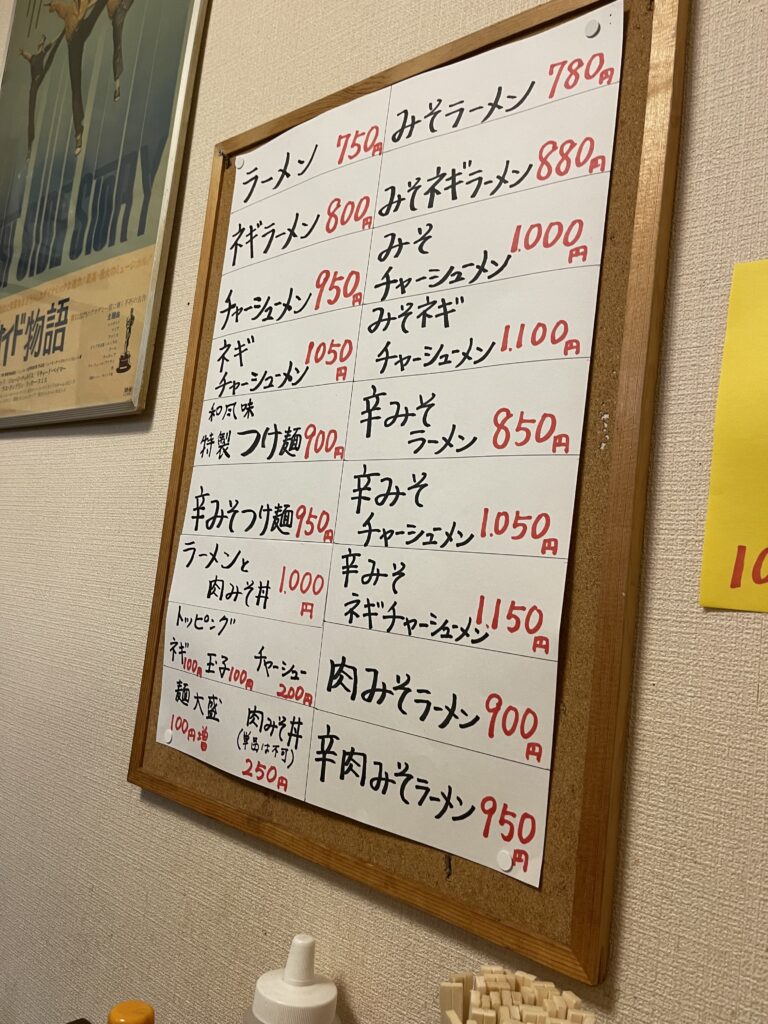 ラーメン 750円
ネギラーメン 800円
チャーシューメン 950円
ネギ
チャーシューメン 1050円
和風味
特製 つけ麺 900円
辛みそつけ麺 950円
ラーメンと
肉みそ丼 1.000円
トッピング
ネギ100円 玉子100円 チャーシュー200円
麺大盛
100円増
肉みそ丼
(単品は不可)
250円
みそラーメン 780円
みそネギラーメン 880円
みそ
チャーシューメン 1.000円
みそネギ
チャーシューメン 1.100円
辛みそ
ラーメン 850円
辛みそ
チャーシューメン 1.050円
辛みそ
ネギチャーシューメン 1.150円
肉みそラーメン 900円
辛肉みそラーメン 950円
SIDE STORY
イド物語
10